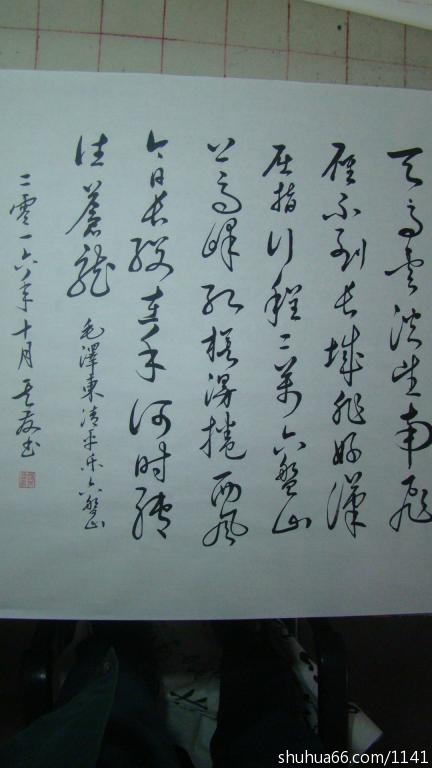 天高雲淡望南飛
雁不到长城非好漢
屈指行程二萬六盤山
上高峰紅旗漫捲西風
今日长纓在手何時縛
住蒼龍
毛澤東清平乐六盤山
二零一六年十月 书
shuhua66.com/1141